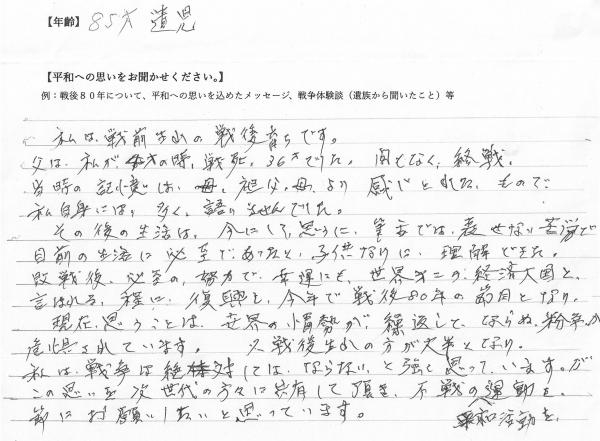 【年齢】 85才 遺児
【平和への思いをお聞かせください。】
例：戦後８０年について、平和への思いを込めたメッセージ、戦争体験談（遺族から聞いたこと）等
私は、戦前生れの戦後育ちです。
父は、私が4才の時、戦死。36才でした。間もなく、終戦。
当時の記憶は、母、祖父、母、より感じとれた、もので、
私自身には、多く、語りませんでした。
その後の生活は、今にして、思うに、筆舌では、表せない苦労で
目前の生活に必至であったと、子供なりに、理解できた。
敗戦後、必至の、努力で、幸運にも、世界第二の、経済大国と、
言はれる、程に、復興し、今年で戦後80年の節目となり、
現在、思うことは、世界の情勢が、繰返して、ならぬ、紛争が
危惧されています。 又戦後生れの方が大半となり、
私は、戦争は絶対してはならない、と強く思っています。が
この思いを次世代の方々に共有して頂き、不戦の運動を、
平和活動を、
節にお願いしたいと思っています。